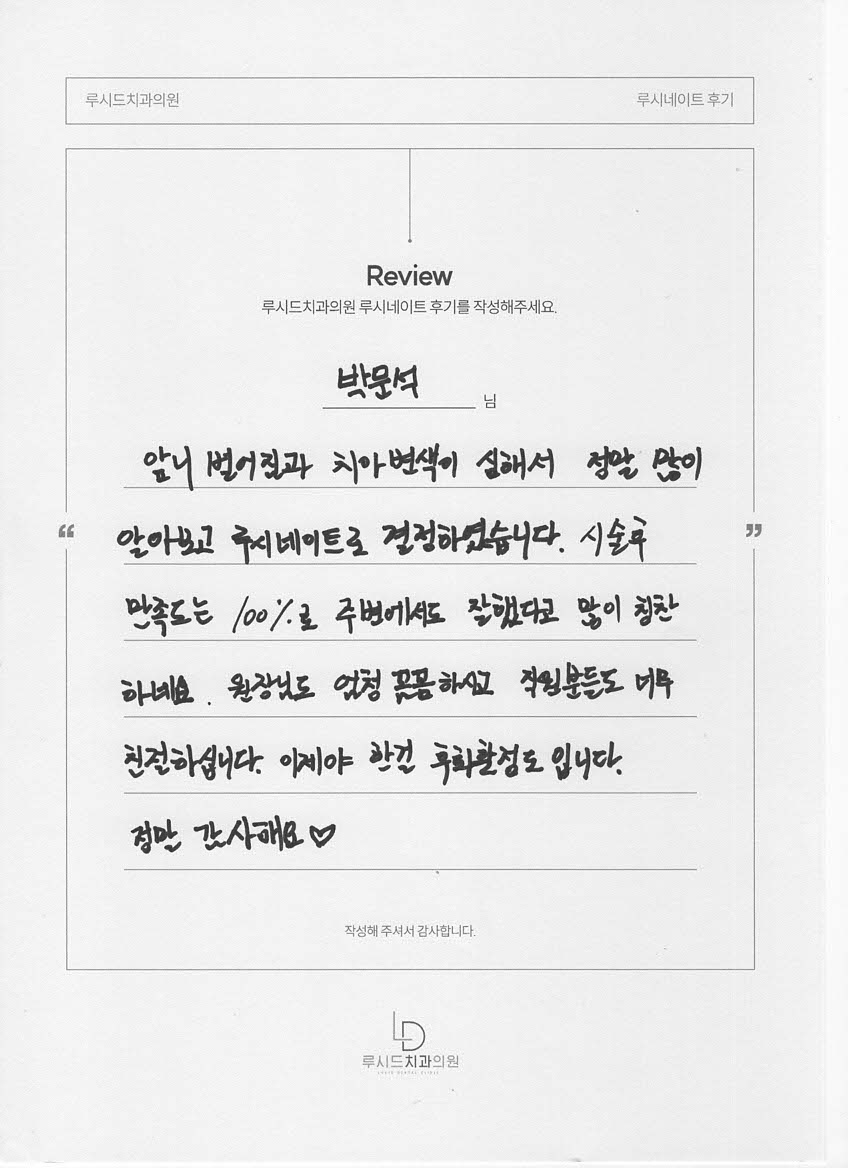 루시드치과의원
루시네이트 후기
Review
루시드치과의원 루시네이트 후기를 작성해주세요.
박문석 님
앞니 벌어짐과 치아변색이 심해서 정말 많이
“ 알아보고 루시네이트로 결정하였습니다. 시술후 ”
만족도는 100%로 주변에서도 잘했다고 많이 칭찬
하네요. 원장님도 엄청 꼼꼼하시고 직원분들도 너무
친절하십니다. 이제야 한걸 후회할정도 입니다.
정말 감사해요♡
작성해 주셔서 감사합니다.
LD
루시드치과의원
LUCID DENTAL CLINIC